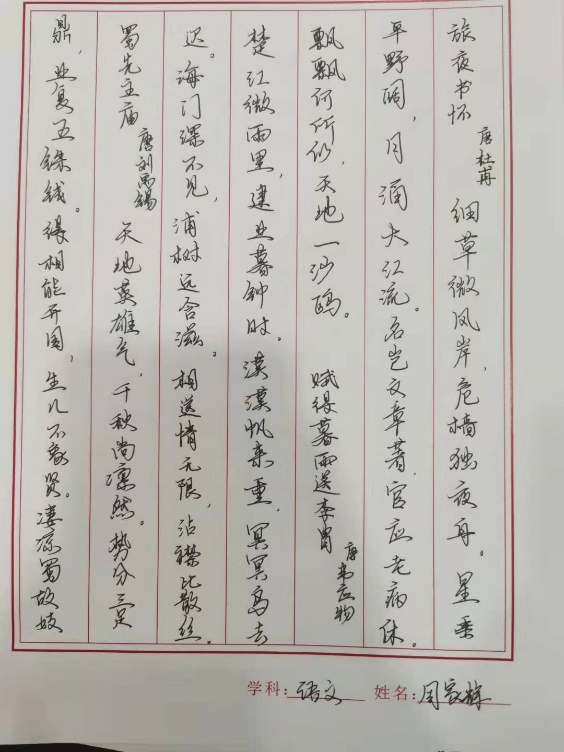 旅夜书怀 唐杜甫 细草微风岸,危樯独夜舟。星垂
平野阔,月涌大江流。名岂文章著,官应老病休。
飘飘何所似,天地一沙鸥。 赋得暮雨送李胄 唐韦应物
楚江微雨里,建业暮钟时。漠漠帆来重,冥冥鸟去
迟。海门深不见,浦树远含滋。相送情无限,沾襟比散丝。
蜀先主庙 唐刘禹锡 天地英雄气,千秋尚凛然。势分三足
鼎,业复五铢钱。得相能开国,生儿不象贤。凄凉蜀故妓
学科:语文 姓名: